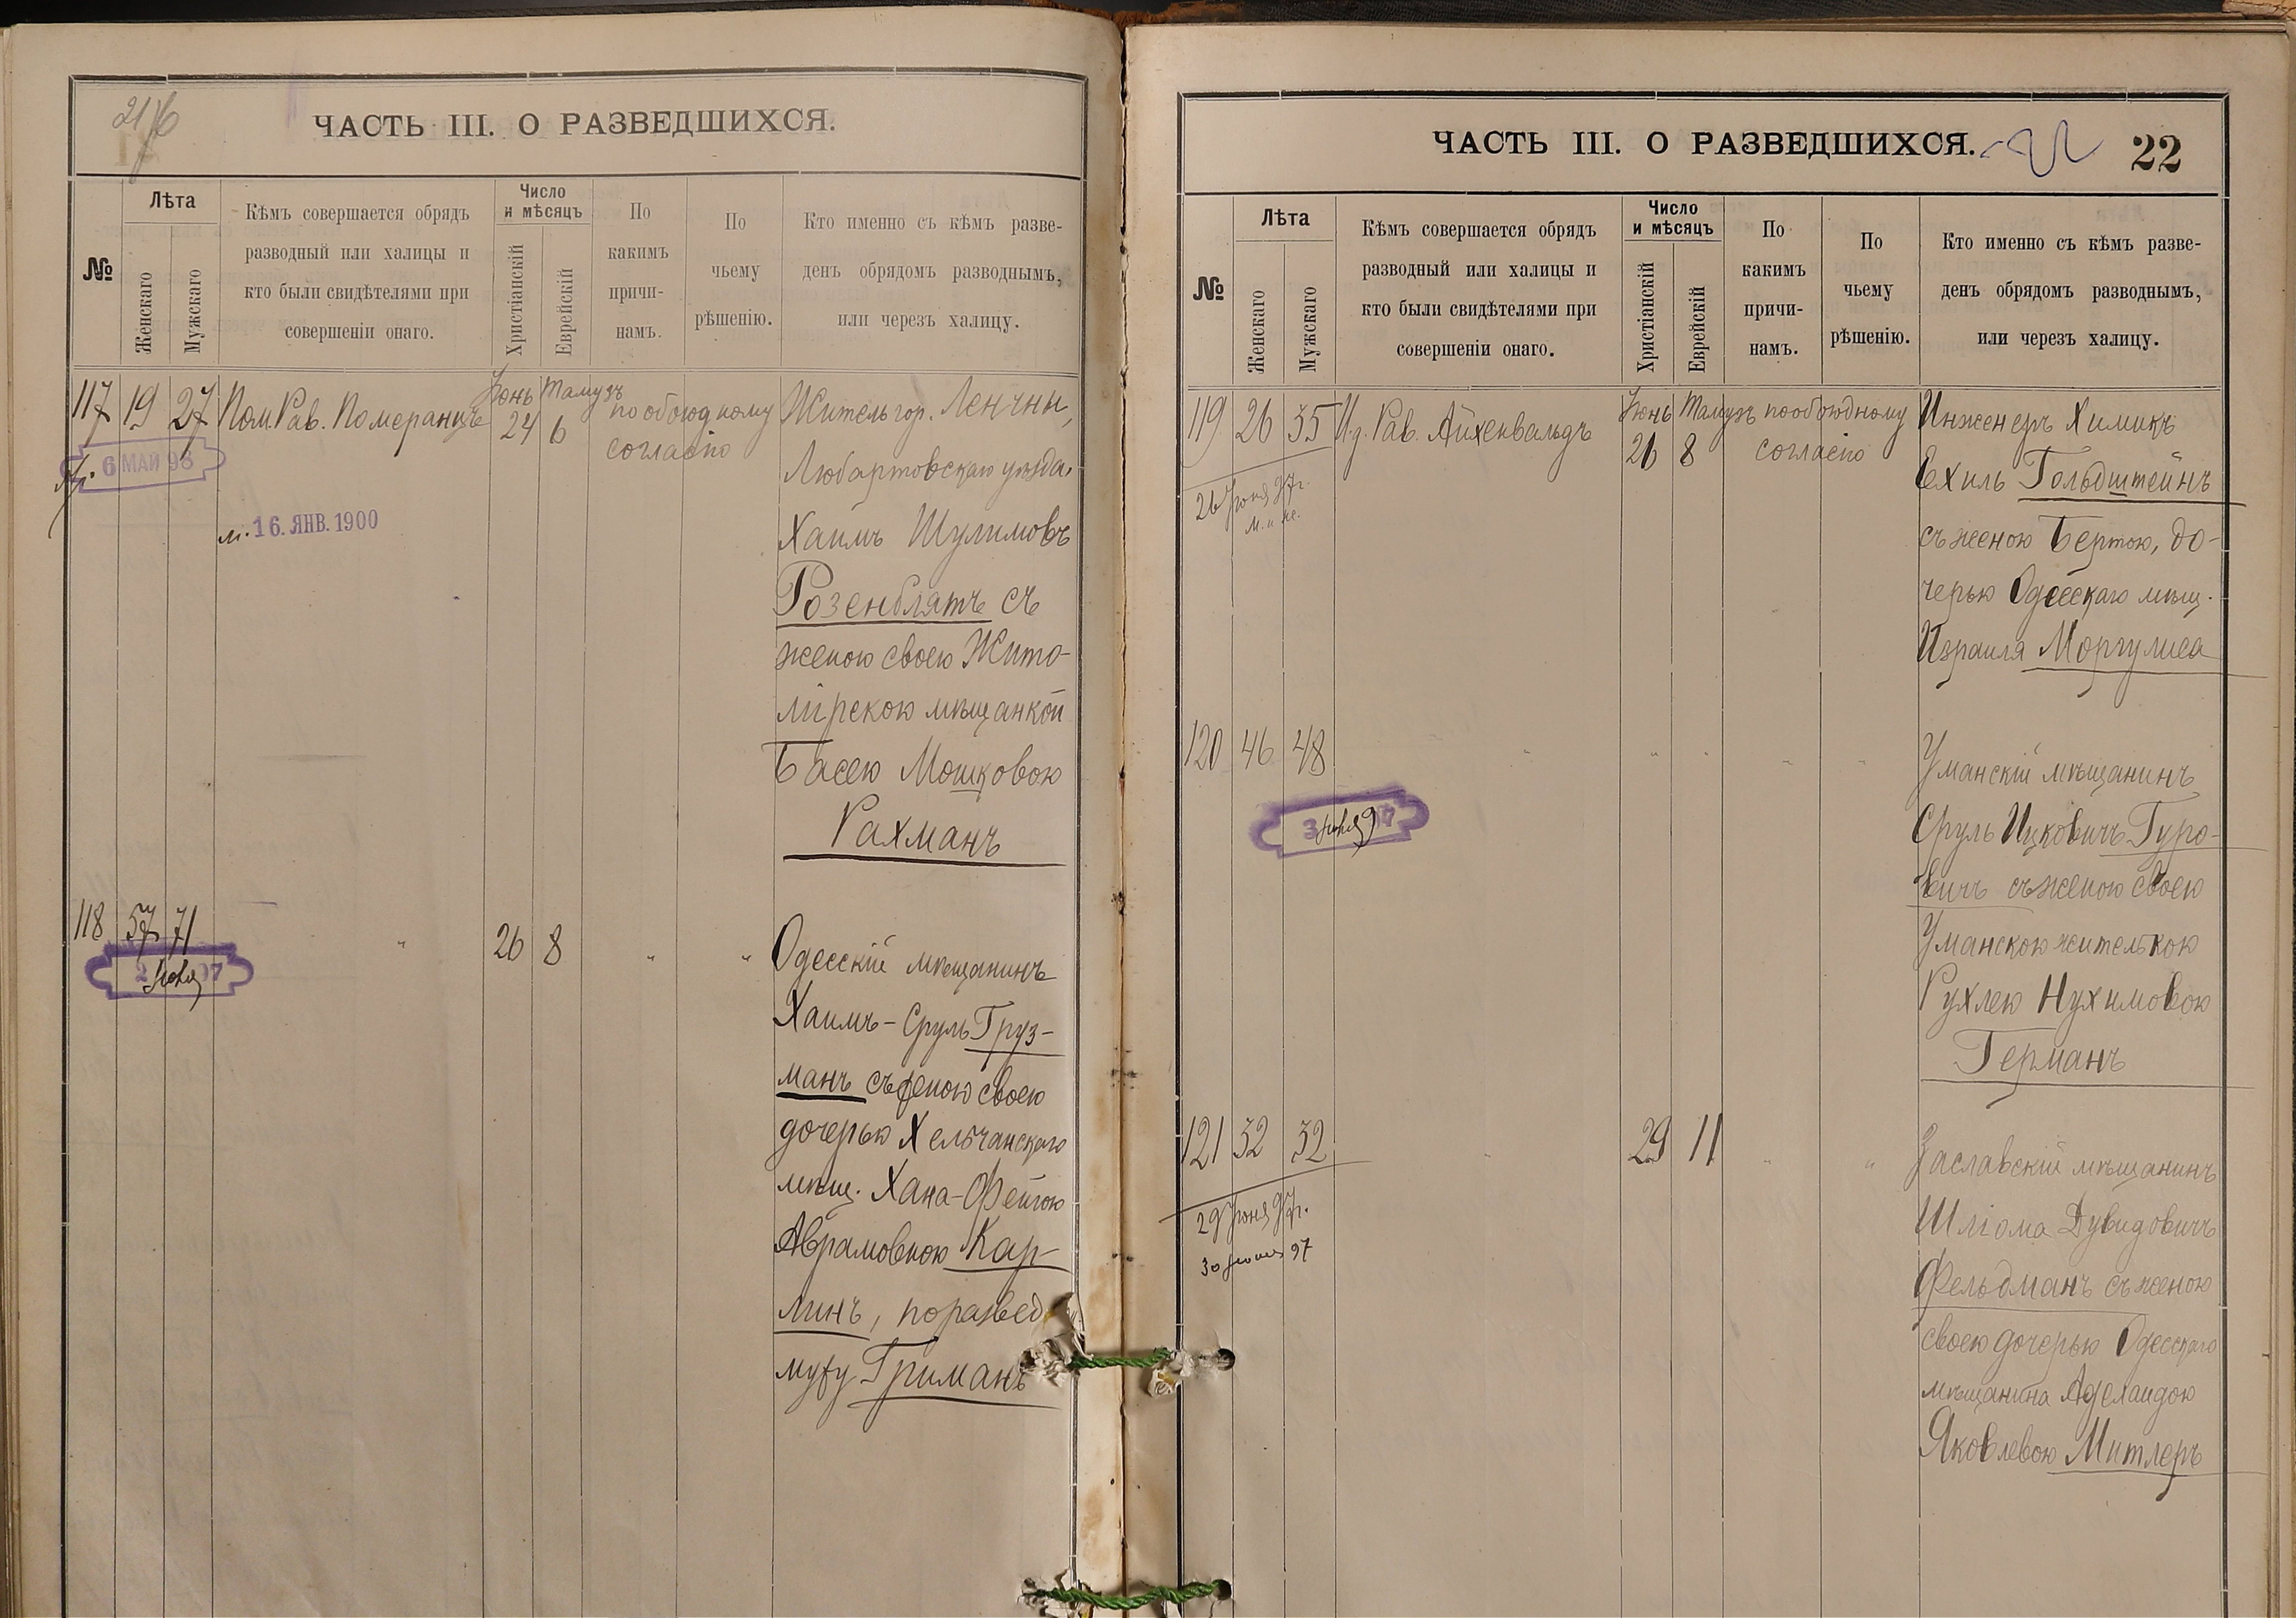 ЧАСТЬ III. О РАЗВЕДШИХСЯ.
№
Лѣта
Женскаго
Мужскаго
Кѣмъ совершается обрядъ
разводный или халицы и
кто были свидѣтелями при
совершеніи онаго.
Число
и мѣсяцъ
Христіанскій
Еврейскій
По
какимъ
причи-
намъ.
По
чьему
рѣшенію.
Кто именно съ кѣмъ разве-
денъ обрядомъ разводнымъ,
или черезъ халицу.
117 19 27 Пом. Рав. Померанцъ Іюнь 24 Тамузъ 6 по обоюдному
согласію
6 МАЙ 98
м. 16. ЯНВ. 1900
Житель гор. Ленчны,
Любартовскаго уѣзда,
Хаимъ Шулимовъ
Розенблятъ съ
женою своею Жито-
мірскою мѣщанкой
Басею Мошковою
Рахманъ
118 57 71 " 26 8 " "
Одесскій мѣщанинъ
Хаимъ-Сруль Груз-
манъ съ женою своею
дочерью Хельчанскаго
мѣщ. Хана-Фейгою
Аврамовною Кар-
линъ, по развед
мужу Гриманъ
ЧАСТЬ III. О РАЗВЕДШИХСЯ. 22
№
Лѣта
Женскаго
Мужскаго
Кѣмъ совершается обрядъ
разводный или халицы и
кто были свидѣтелями при
совершеніи онаго.
Число
и мѣсяцъ
Христіанскій
Еврейскій
По
какимъ
причи-
намъ.
По
чьему
рѣшенію.
Кто именно съ кѣмъ разве-
денъ обрядомъ разводнымъ,
или черезъ халицу.
119 26 35 И.д. Рав. Айхенвальдъ Іюнь 26 Тамузъ 8 по обоюдному
согласію
26 Іюня 97 г.
м. и ж.
Инженеръ Химикъ
Ехиль Гольдштейнъ
съ женою Бертою, до-
черью Одесскаго мѣщ.
Израиля Моргулиса
120 46 48 " " " " "
Уманскій мѣщанинъ
Сруль Ицковичъ Гуро-
вичъ съ женою своею
Уманскою жителькою
Рухлею Нухимовою
Германъ
121 32 32 " 29 11 " "
29 Іюня 97 г.
30 Іюня 97
Заславскій мѣщанинъ
Шліома Дувидовичъ
Фельдманъ съ женою
своею дочерью Одесскаго
мѣщанина Аделаидою
Яковлевою Митлеръ